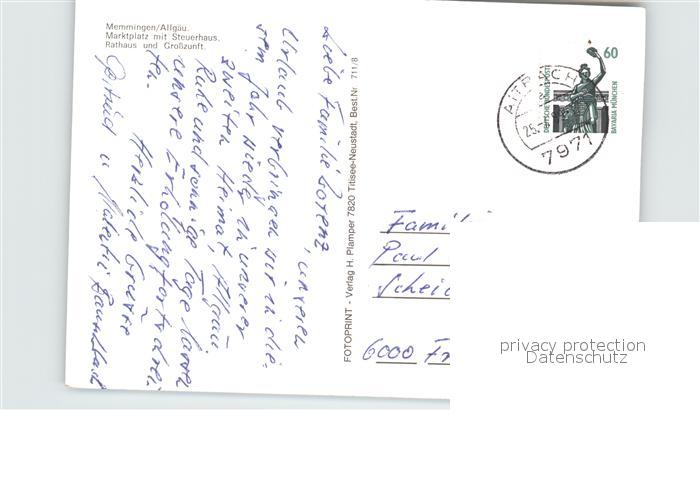 Memmingen/Allgäu.
Marktplatz mit Steuerhaus,
Rathaus und Großzunft.
Liebe Familie Lorenz,
unseren
Urlaub verbringen wir in die-
sem Jahr wieder in unserer
zweiten Heimat Allgäu
Ruhe und sonnige Tage lassen
unsere Erholung fortschrei-
ten.
Herzliche Grüsse
Gertrud u
FOTOPRINT - Verlag H. Plamper 7820 Titisee-Neustadt, Best.Nr 711/8
60
DEUTSCHE BUNDESPOST
BAVARIA MÜNCHEN
7971
Famili
Paul
Scheid
6000 Fr
privacy protection
Datenschutz